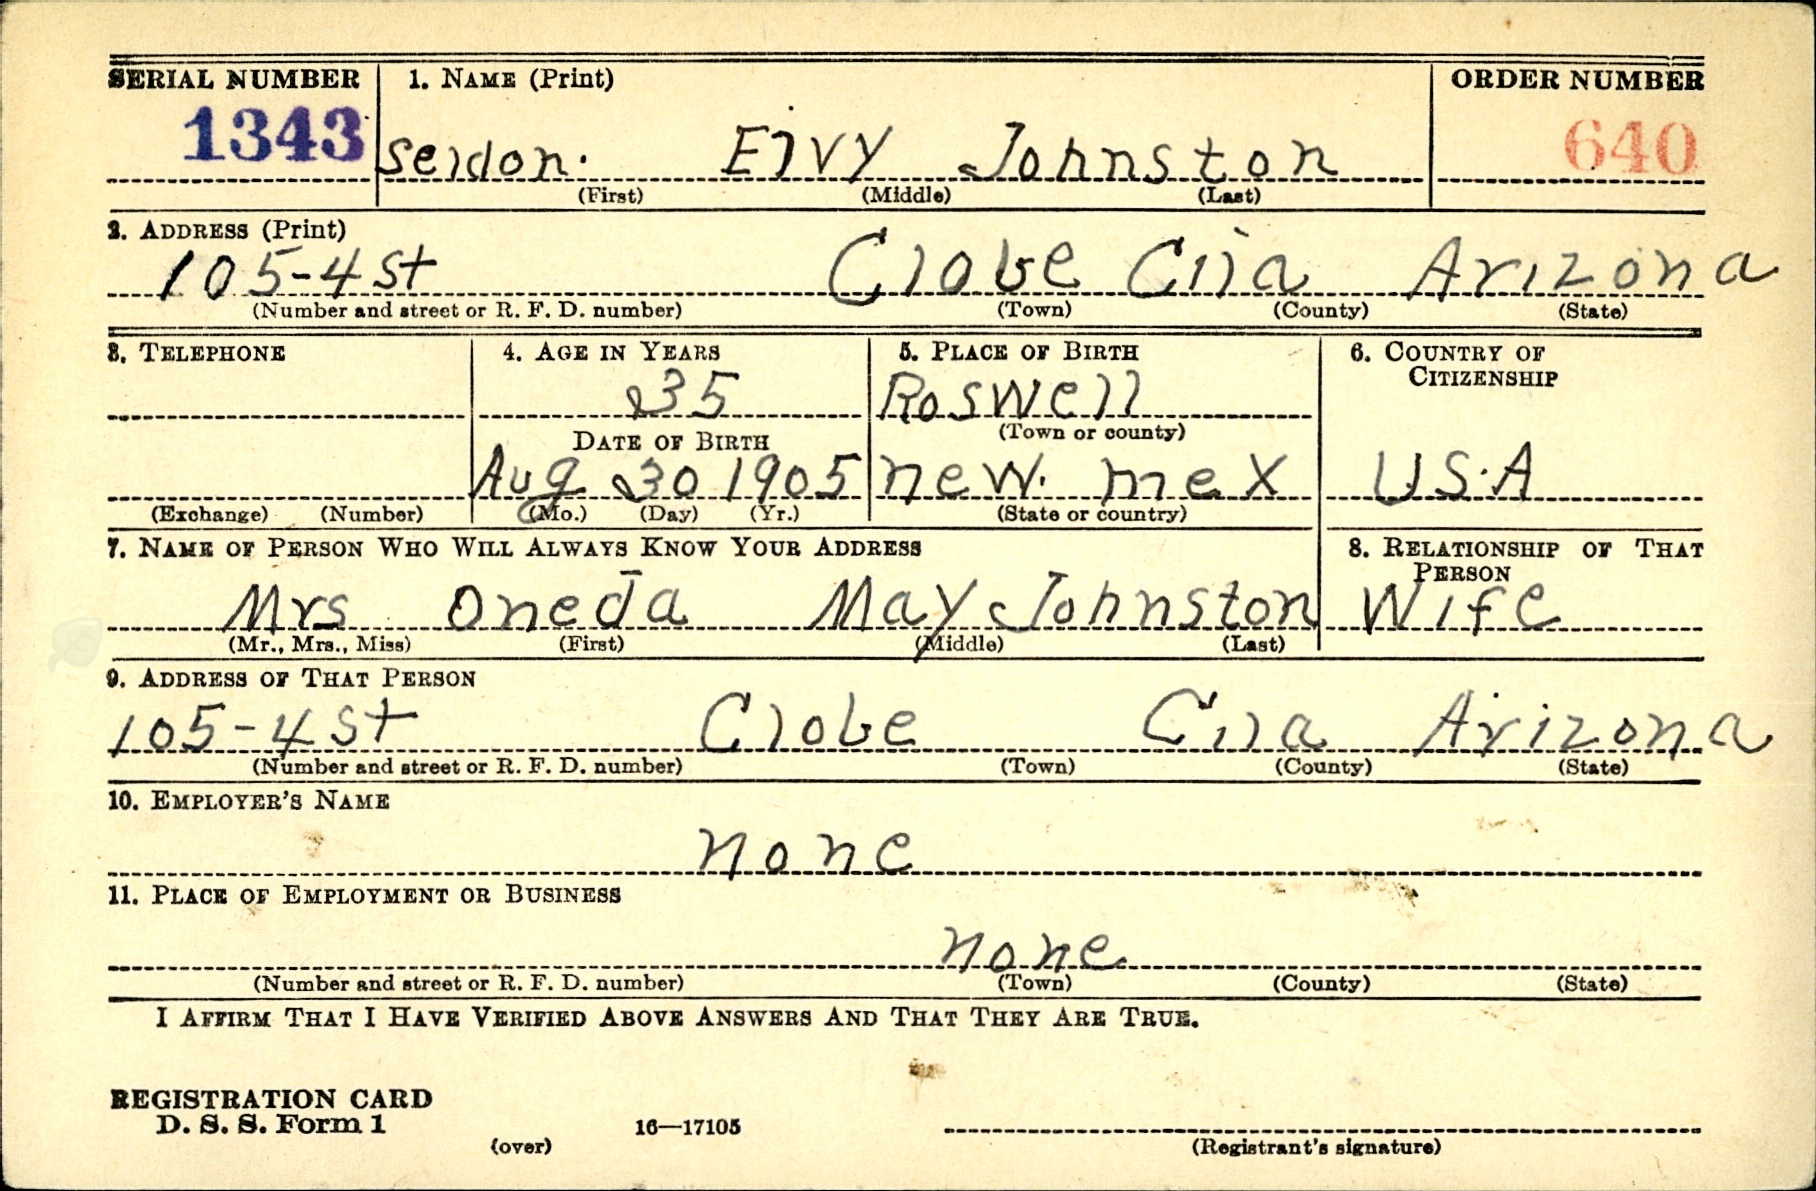 SERIAL NUMBER 1. NAME (Print) ORDER NUMBER
1343 Seldon. Elvy Johnston 640
(First) (Middle) (Last)
2. ADDRESS (Print)
105-4 St Globe Gila Arizona
(Number and street or R. F. D. number) (Town) (County) (State)
3. TELEPHONE 4. AGE IN YEARS 5. PLACE OF BIRTH 6. COUNTRY OF CITIZENSHIP
35 Roswell
(Town or county)
DATE OF BIRTH
Aug 30 1905 new. mex U.S.A
(Exchange) (Number) (Mo.) (Day) (Yr.) (State or country)
7. NAME OF PERSON WHO WILL ALWAYS KNOW YOUR ADDRESS 8. RELATIONSHIP OF THAT PERSON
Mrs Oneda May Johnston Wife
(Mr., Mrs., Miss) (First) (Middle) (Last)
9. ADDRESS OF THAT PERSON
105-4 St Globe Gila Arizona
(Number and street or R. F. D. number) (Town) (County) (State)
10. EMPLOYER'S NAME
none
11. PLACE OF EMPLOYMENT OR BUSINESS
none
(Number and street or R. F. D. number) (Town) (County) (State)
I AFFIRM THAT I HAVE VERIFIED ABOVE ANSWERS AND THAT THEY ARE TRUE.
REGISTRATION CARD
D. S. S. Form 1 16—17105
(over) (Registrant's signature)